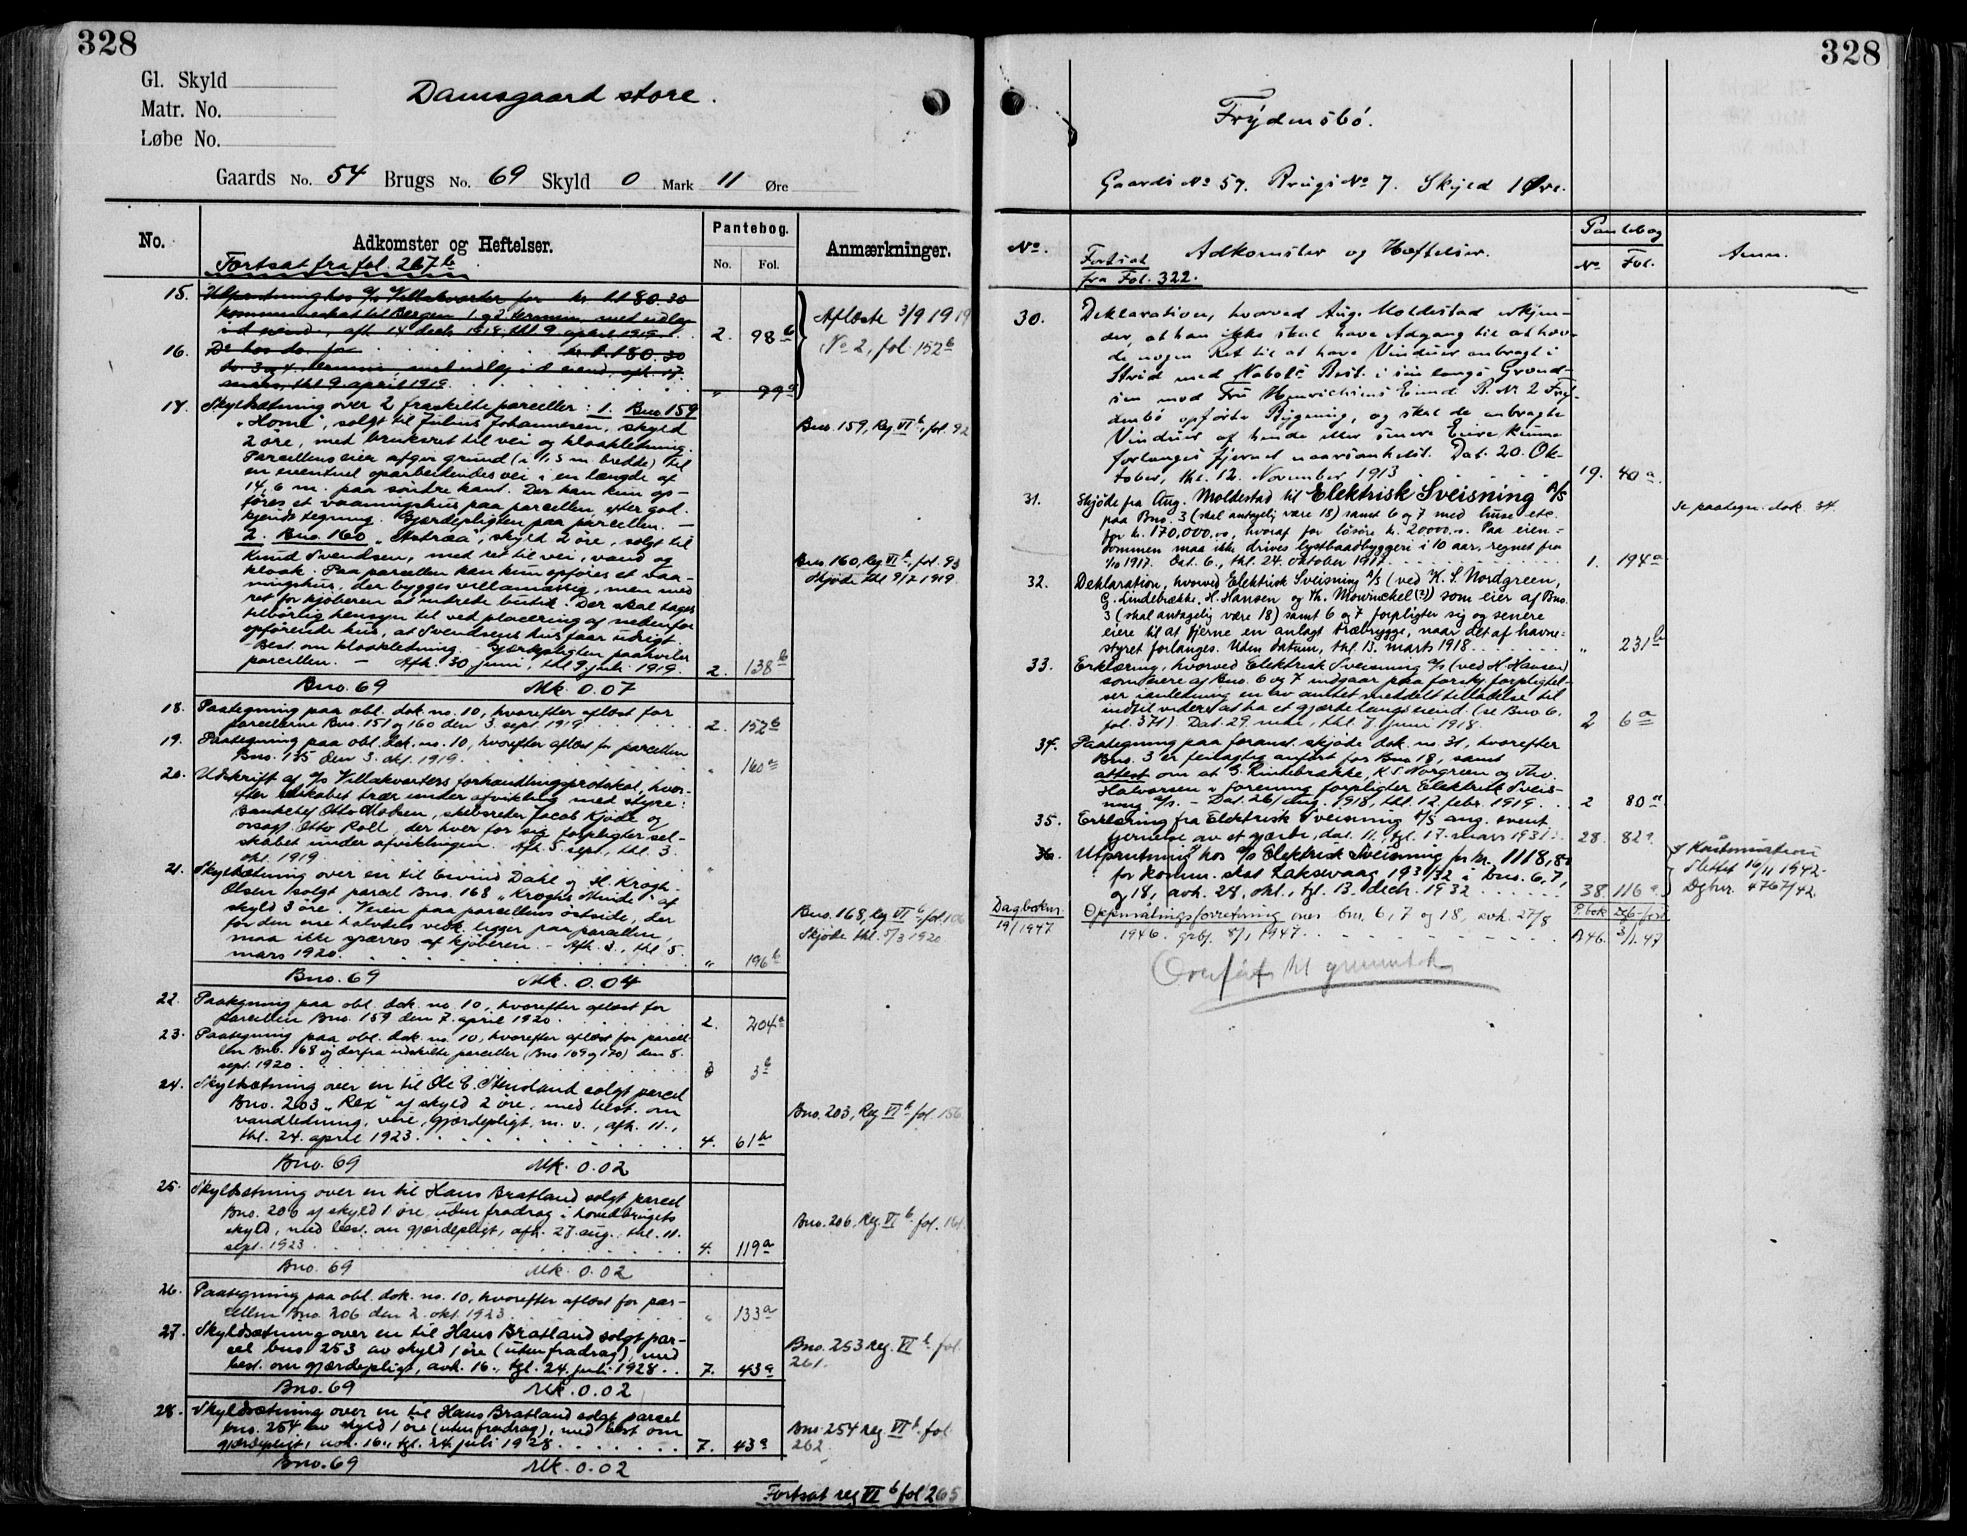 328
Gl. Skyld
Matr. No.
Løbe No.
Damsgaard store.
Gaards No. 54 Brugs No. 69 Skyld 0 Mark 11 Øre
No.
Adkomster og Heftelser.
Pantebog.
No. Fol.
Anmærkninger.
Fortsat fra fol. 267b
15. Utpantning hos A/S Villakvarter for kr. 80.30
kommuneskat til Bergen 1. og 2. termin, med udlæg
i d. eiend., afh. 14 decb. 1918, thl. 9 april 1919. 2. 98b
16. Do hos do. for kr. 80.30
do. 3. og 4. termin, med udlæg i d. eiend., afh. 17.
mars, thl. 9 april 1919. " 99a
Aflæste 3/9 1919
No 2, fol. 152b
17. Skyldsætning over 2 fraskilte parceller: 1. Bno. 159
"Home", solgt til Julius Johannesen, skyld
2 øre, med bruksret til vei og kloakledning.
Parcellens eier afgir grund (i 1,5 m. bredde) til
en eventuel oparbeidendes vei i en længde af
14,6 m. paa søndre kant. Der kan kun op-
føres et vaaningshus paa parcellen, efter god-
kjendt tegning. Gjærdepligten paa parcellen. —
2. Bno. 160 "Astræa", skyld 2 øre, solgt til
Knud Svendsen, med ret til vei, vand og
kloak. Paa parcellen kan kun opføres et vaa-
ningshus, der bygges villamæssig, men med
ret for kjøberen at indrede butik. Der skal tages
tilbørlig hensyn til ved placering af nedenfor
opførende hus, at Svendsens hus faar udsigt.
Best. om kloakledning. Gjærdepligten paahviler
parcellen. — Afh. 30 juni, thl. 9 juli 1919. 2. 138b
Bno. 159, Reg VIb, fol. 92
Bno. 160, Reg VIb, fol. 93
Skjøde thl. 9/7 1919.
Bno. 69 Mk. 0.07
18. Paategning paa obl. dok. no. 10, hvorefter aflæst for
parcellerne Bno. 151 og 160 den 3 sept. 1919. 2. 152b
19. Paategning paa obl. dok. no. 10, hvorefter aflæst for parcellen
Bno. 135 den 3. okt. 1919. " 160a
20. Udskrift af A/S Villakvarters forhandlingsprotokol, hvor-
efter selskabet trær under afvikling med styre:
banksjef Otto Madsen, skibsreder Jacob Kjøde og
orsagf. Otto Roll, der hver for sig forpligter sel-
skabet under afviklingen. Afh. 5. sept., thl. 3.
okt. 1919. "
21. Skyldsætning over en til Eivind Dahl og H. Krogh-
Olsen solgt parcel Bno. 168 "Kroghs Minde" af
skyld 3 øre. Veien paa parcellens østside, der
for den ene halvdels vedk. ligger paa parcellen,
maa ikke spærres af kjøberen. — Afh. 3., thl. 5.
mars 1920. " 196b
Bno. 168, Reg VIb, fol. 106
Skjøde thl. 5/3 1920
Bno. 69 Mk. 0.04
22. Paategning paa obl. dok. no. 10, hvorefter aflæst for
parcellen Bno. 159 den 7. april 1920. 2. 204a
23. Paategning paa obl. dok. no. 10, hvorefter aflæst for parcel-
len Bno. 168 og derfra udskilte parceller (Bno. 169 og 170) den 8.
sept. 1920. 3 3b
24. Skyldsætning over en til Ole E. Stensland solgt parcel
Bno. 203 "Rex" af skyld 2 øre, med best. om
vandledning, veie, gjærdepligt, m. v., afh. 11.,
thl. 24. april 1923. 4. 61b
Bno. 203, Reg VIb fol. 156
Bno. 69 Mk. 0.02
25. Skyldsætning over en til Hans Bratland solgt parcel
Bno. 206 af skyld 1 øre, uden fradrag i hovedbrugets
skyld, med best. om gjærdepligt, afh. 27. aug., thl. 11.
sept. 1923. 4. 119a
Bno. 206, Reg. VIb fol. 161.
Bno. 69 Mk. 0.02
26. Paategning paa obl. dok. no. 10, hvorefter aflæst for par-
cellen Bno. 206 den 2. okt. 1923 " 133a
27. Skyldsætning over en til Hans Bratland solgt par-
cel bno. 253 av skyld 1 øre (uten fradrag), med
best. om gjærdepligt, avh. 16., tgl. 24. juli 1928. 7. 43a
Bno. 253 reg. VIb fol.
261.
Bno. 69 Mk. 0.02
28. Skyldsætning over en til Hans Bratland solgt parcel
bno. 254 av skyld 1 øre (uten fradrag), med best. om
gjærdepligt, avh. 16., tgl. 24. juli 1928. 7. 43a
Bno. 254 reg VIb fol.
262.
Bno. 69 Mk. 0.02
Fortsat reg VIb fol 265
328
Frydensbö.
Gaards No 59. Brugs No 7. Skyld 1 Øre.
No.
Adkomster og Hæftelser.
Pantebog
No Fol.
Anm.
Fortsat
fra Fol. 322.
30. Deklaration, hvorved Aug. Moldestad erkjen-
der, at han ikke skal have Adgang til at hæv-
de nogen Ret til at have Vinduer anbragt i
Strid med Nabolo Best. i sin langs Grænd-
sen mod Fru Henrichsens Eiend. B. No 2 Fry-
densbö opførte Bygning, og skal de anbragte
Vinduer af hende eller senere Eiere kunne
forlanges fjernet naarsomhelst. Dat. 20. Ok-
tober, thl. 12. November 1913 19. 40a.
31. Skjøde fra Aug. Moldestad til Elektrisk Sveisning A/S
paa Bno. 3 (skal antagelig være 18) samt 6 og 7 med huse etc.
for kr. 170,000.00, hvoraf for løsöre kr. 20000.00. Paa eien-
dommen maa ikke drives lystbaadbyggeri i 10 aar, regnet fra
1/10 1917. Dat. 6., thl. 24. oktober 1917. 1. 194a
Se paategn. dok. 34.
32. Deklaration, hvorved Elektrisk Sveisning A/S (ved K. S. Nordgreen,
G. Lindebrække, H. Hansen og Th. Mowinckel (?)) som eier af Bno.
3 (skal antagelig være 18) samt 6 og 7 forpligter sig og senere
eiere til at fjerne en anlagt træbrygge, naar det af havne-
styret forlanges. Uden datum, thl. 13. marts 1918. " 231b
33. Erklæring, hvorved Elektrisk Sveisning A/S (ved H. Hansen)
som eiere af Bno. 6 og 7 indgaar paa forskj. forpligtel-
ser i anledning en av amtet meddelt tilladelse til
indtil videre at ha et gjærde langs eiend. (se Bno 6.
fol. 371). Dat. 29 mai, thl. 7 juni 1918. 2 6a
34. Paategning paa foranst. skjøde dok. no. 31, hvorefter
Bno. 3 er feilagtig anført for Bno 18, samt
attest om at G. Lindebrække, K S Norgreen og Thv.
Halvorsen i forening forpligter Elektrisk Sveis-
ning A/S. — Dat. 26 aug. 1918, thl. 12. febr. 1919. 2 80a
35. Erklæring fra Elektrisk Sveisning A/S ang. event.
fjernelse av et gjærde, dat. 11., tgl. 17. mars 1931. 28. 82a
36. Utpantning hos A/S Elektrisk Sveisning for kr. 1118,80
for kommn. skat Laksevaag 1931/32 i bno. 6, 7,
og 18, avh. 28. okt., tgl. 13. decb. 1932 38 116a
Slettet 16/11 1942.
Dgbnr. 4767/42
Dagboknr.
19/1947
Oppmålingsforretning over bnr. 6, 7 og 18, avh. 27/8
1946. grbf. 8/1 1947.
A 46. 3/1.47
Overført til grunnbok